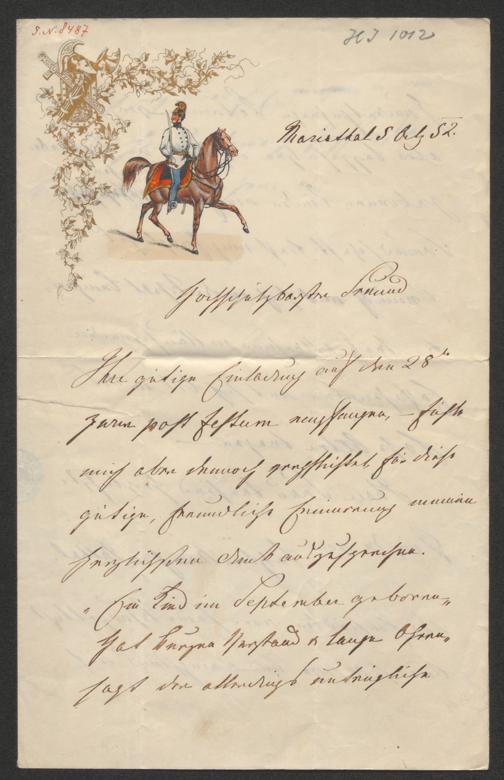 S.N. 8487
HI 1012
Mariathal 5 Octb 52.
Hochschätzbarster Freund
Ihre gütige Einladung auf den 28t
zwar post festum empfangen, – fühle
mich aber dennoch verpflichtet für diese
gütige, freundliche Erinnerung meinen
herzlichsten Dank auszusprechen.
„Ein Kind im September geboren„
Hat kurzen Verstand & lange Ohren„
sagt der allerdings untrügliche